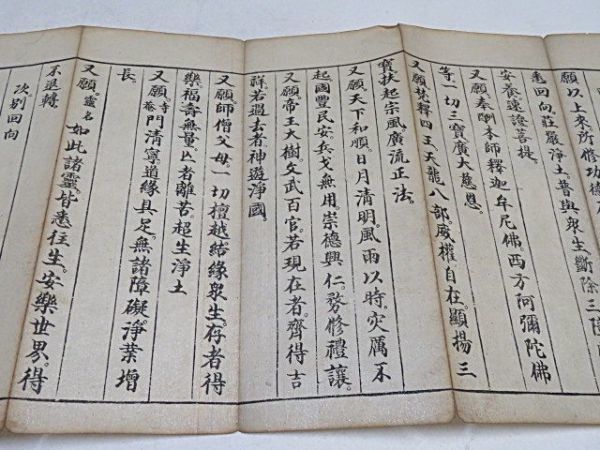 願以上來。所修功德
悉回向。莊嚴淨土。普與衆生斷除三障
安養。速證菩提。
又願。奉酬本師釋迦牟尼佛。西方阿彌陀佛
等一切三寶廣大慈恩。
又願。梵釋四王。天龍八部。廢權自在。顯揚三
寶。扶起宗風。廣流正法。
又願。天下和順。日月清明。風雨以時。灾厲不
起。國豐民安。兵戈無用。崇德興仁。務修禮讓。
又願。帝王大樹。文武百官。若現在者。齊得吉
祥。若過去者。神遊淨國
又願。師僧父母。一切檀越。結緣衆生。存者得
樂。福壽無量。亡者離苦。超生淨土
又願。寺菴門清寧。道緣具足。無諸障礙。淨業增
長。
又願。靈名如此諸靈。皆悉往生。安樂世界。得
不退轉
次別回向